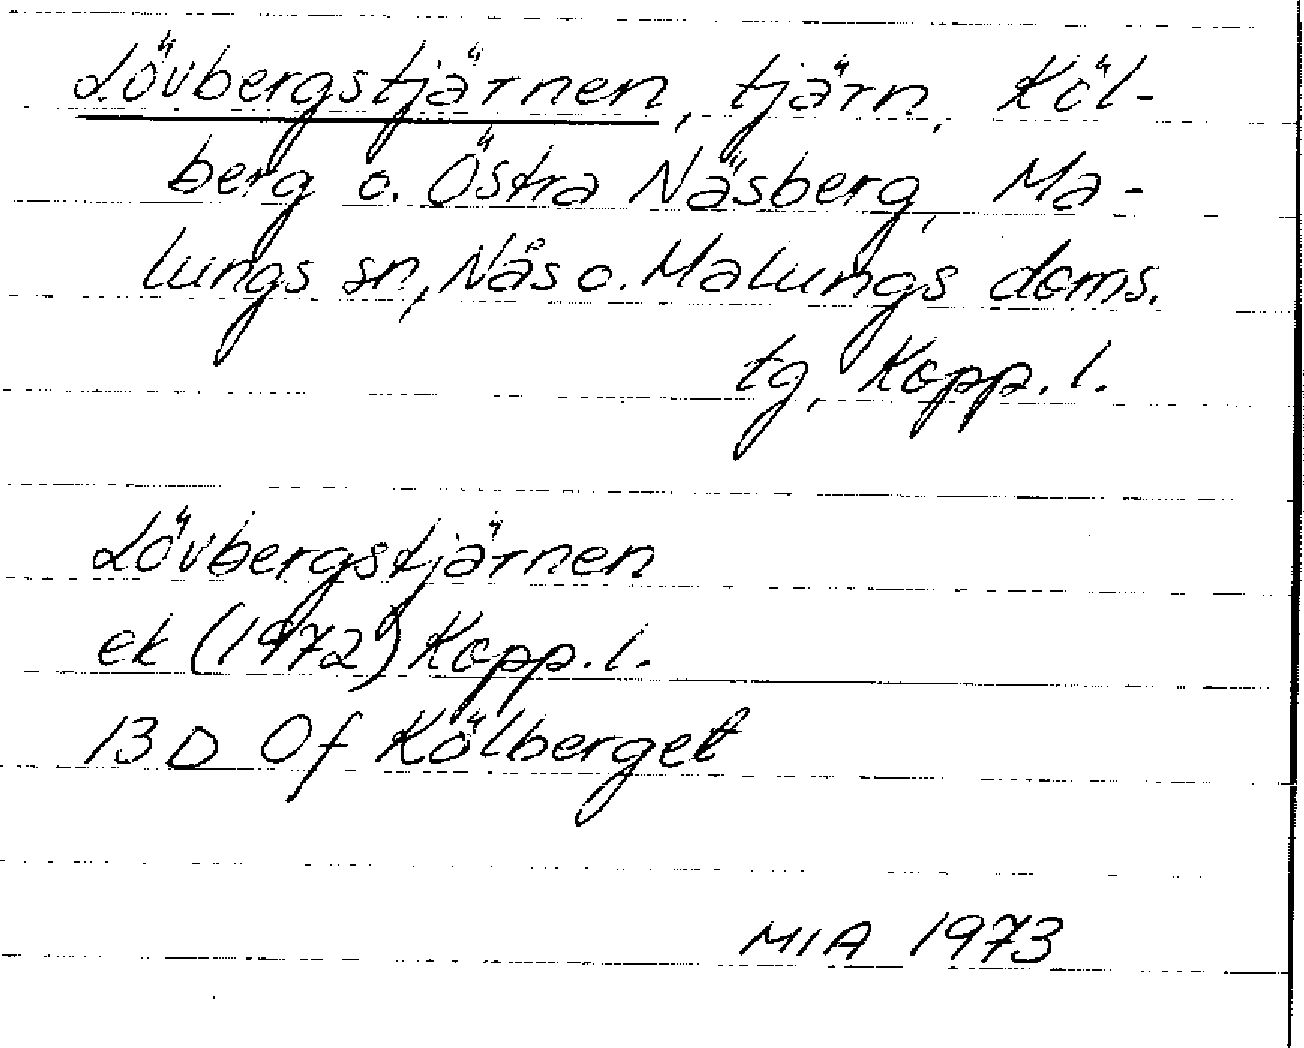 Lövbergstjärnen, tjärn, Köl-
berg o. Östra Näsberg, Ma-
lungs sn, Nås o. Malungs doms.
tg, Kopp. l.
Lövbergstjärnen
ek (1972) Kopp. l.
13 D 0f Kölberget
MIA 1973